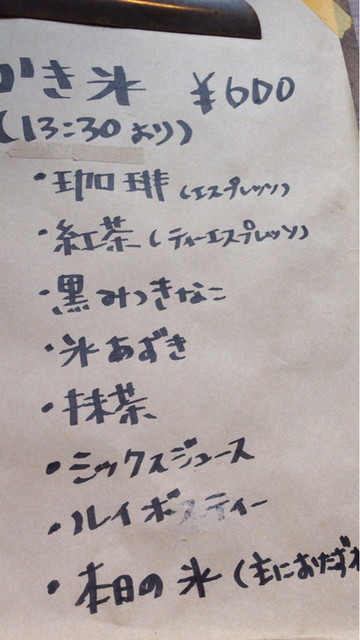 かき氷 ¥600
(13:30より)
・珈琲(エスプレッソ)
・紅茶(ティーエスプレッソ)
・黒みつきなこ
・氷あずき
・抹茶
・ミックスジュース
・ルイボスティー
・本日の氷(主におたずね